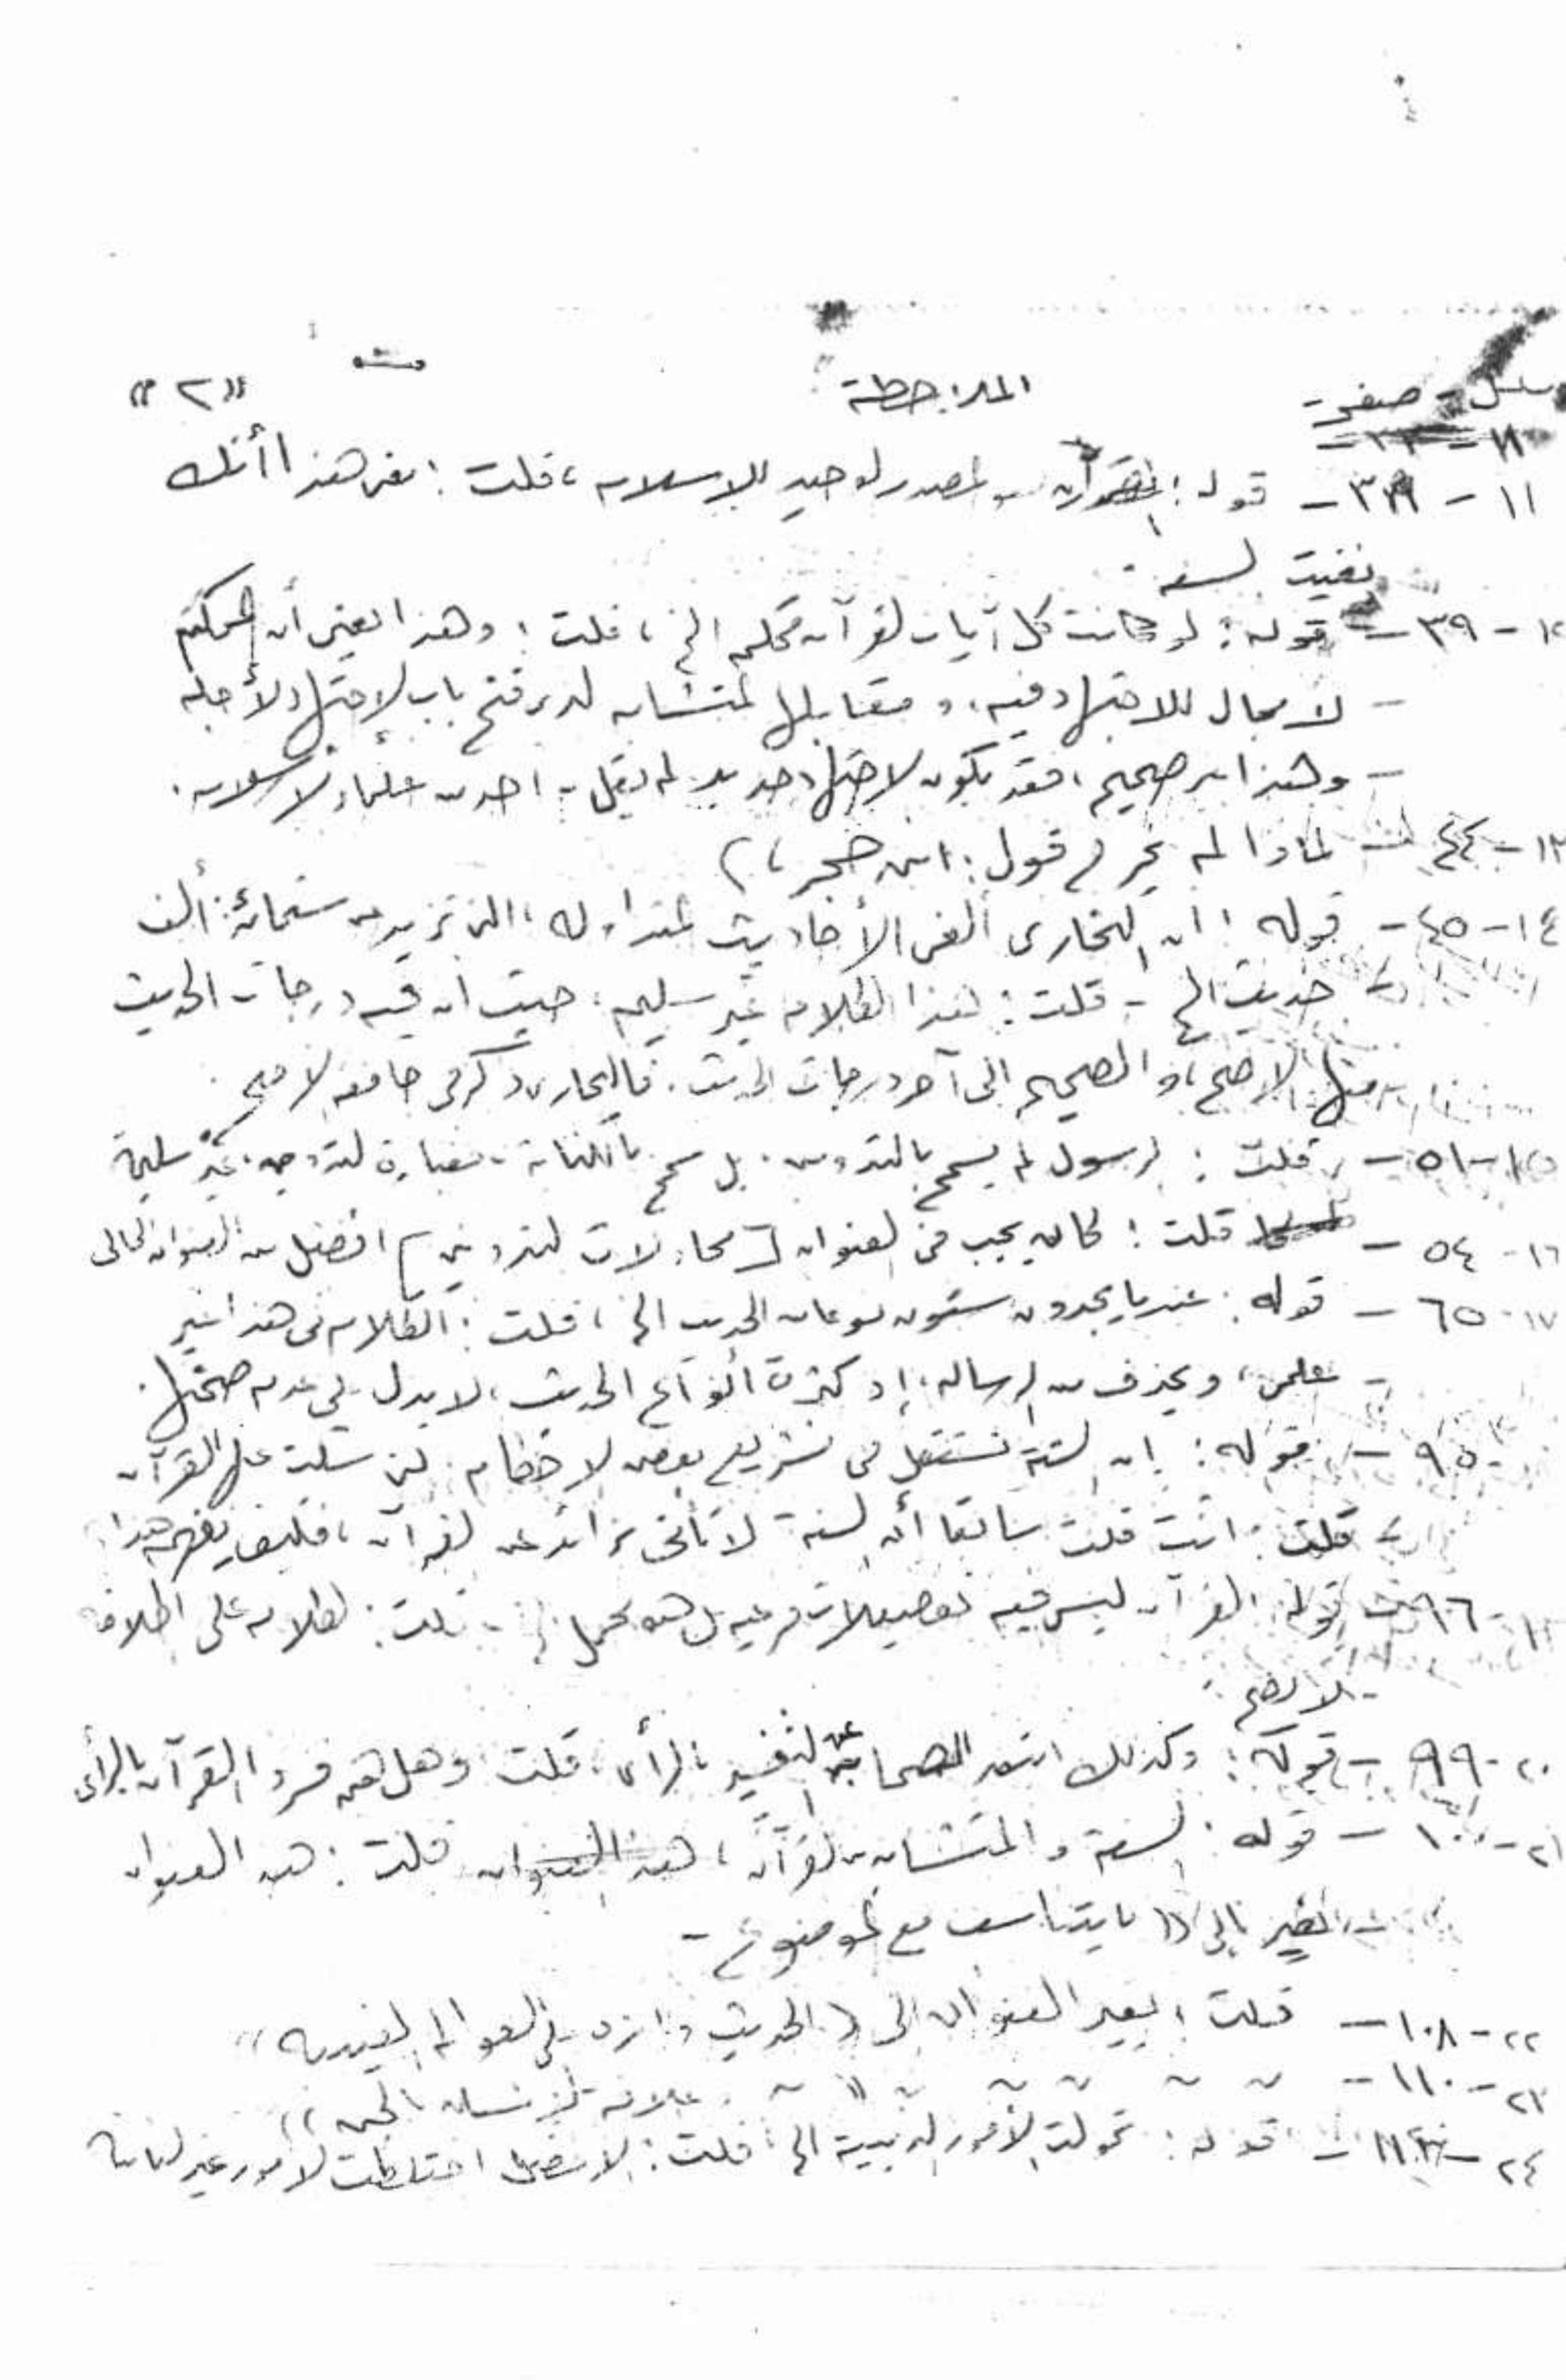 مسلسل - صفحة - الملاحظة «٢»
١١ - ٣٩ - قوله: القرآن هو المصدر الوحيد للإسلام، قلت: معنى هذا أنك
نفيت السنة.
١٢ - ٣٩ - قوله: لو كانت كل آيات القرآن محكمه الخ، قلت: وهذا يعني أن المحكم
- لا مجال للاجتهاد فيه، ومقابلها المتشابه فتح باب الاجتهاد لأجله
- وهذا غير صحيح، فقد يكون الاجتهاد لم يقل به احد من علماء الاسلام.
١٣ - ٤٤ - لماذا لم يخرج قول: ابن حجر،،
١٤ - ٤٥ - قوله: ان البخاري ألغى الأحاديث المتداوله، التى تزيد عن ستمائة ألف
حديث الخ - قلت: هذا الكلام غير سليم، حيث ان فيه درجات الحديث
منها الاصح، والصحيح الى آخر درجات الحديث. فالبخارى ذكر فى جامعه الاصح.
١٥ - ٥١ - قلت: الرسول لم يسمح بالتدوين. بل سمح بالكتابة، فعبارة التدوين غير سليمة
١٦ - ٥٤ - قلت: كان يجب فى العنوان [محاولات التدوين] افضل من العنوان الحالى
١٧ - ٦٥ - قوله: عندما يجدون ستون نوعا من الحديث الخ، قلت: الكلام فى هذا غير
- علمى، ويحذف من الرساله، إذ كثرة أنواع الحديث، لا يدل على عدم صحتها.
- ٩٥ - قوله: ان السنة تستقل فى تشريع بعض الاحكام التى سكت عنها القرآن
قلت: انت قلت سابقا أن السنة لا تأتى بزائد عن القرآن، فكيف يفهم هذا
٩٦ - قوله: القرآن ليس فيه تفصيلات فرعيه بل هو مجمل - قلت: الكلام على اطلاقه
- لا يصح.
٢٠ - ٩٩ - قوله: وكذلك ابتعد الصحابة عن التفسير بالرأى، قلت: وهل هم فسروا القرآن بالرأى
٢١ - ١٠٠ - قوله: السنة والمتشابه من القرآن، هذا العنوان قلت: هذا العنوان
- يغير الى ما يتناسب مع الموضوع -
٢٢ - ١٠٨ - قلت: يغير العنوان الى «الحديث وارد على العوالم الغيبيه»
٢٣ - ١١٠ - ~ ~ ~ ~ ~ « علاقة الانسان بالجن»
٢٤ - قوله: تحولت الأمور الدينية الخ، قلت: الافضل اختلطت الأمور غير